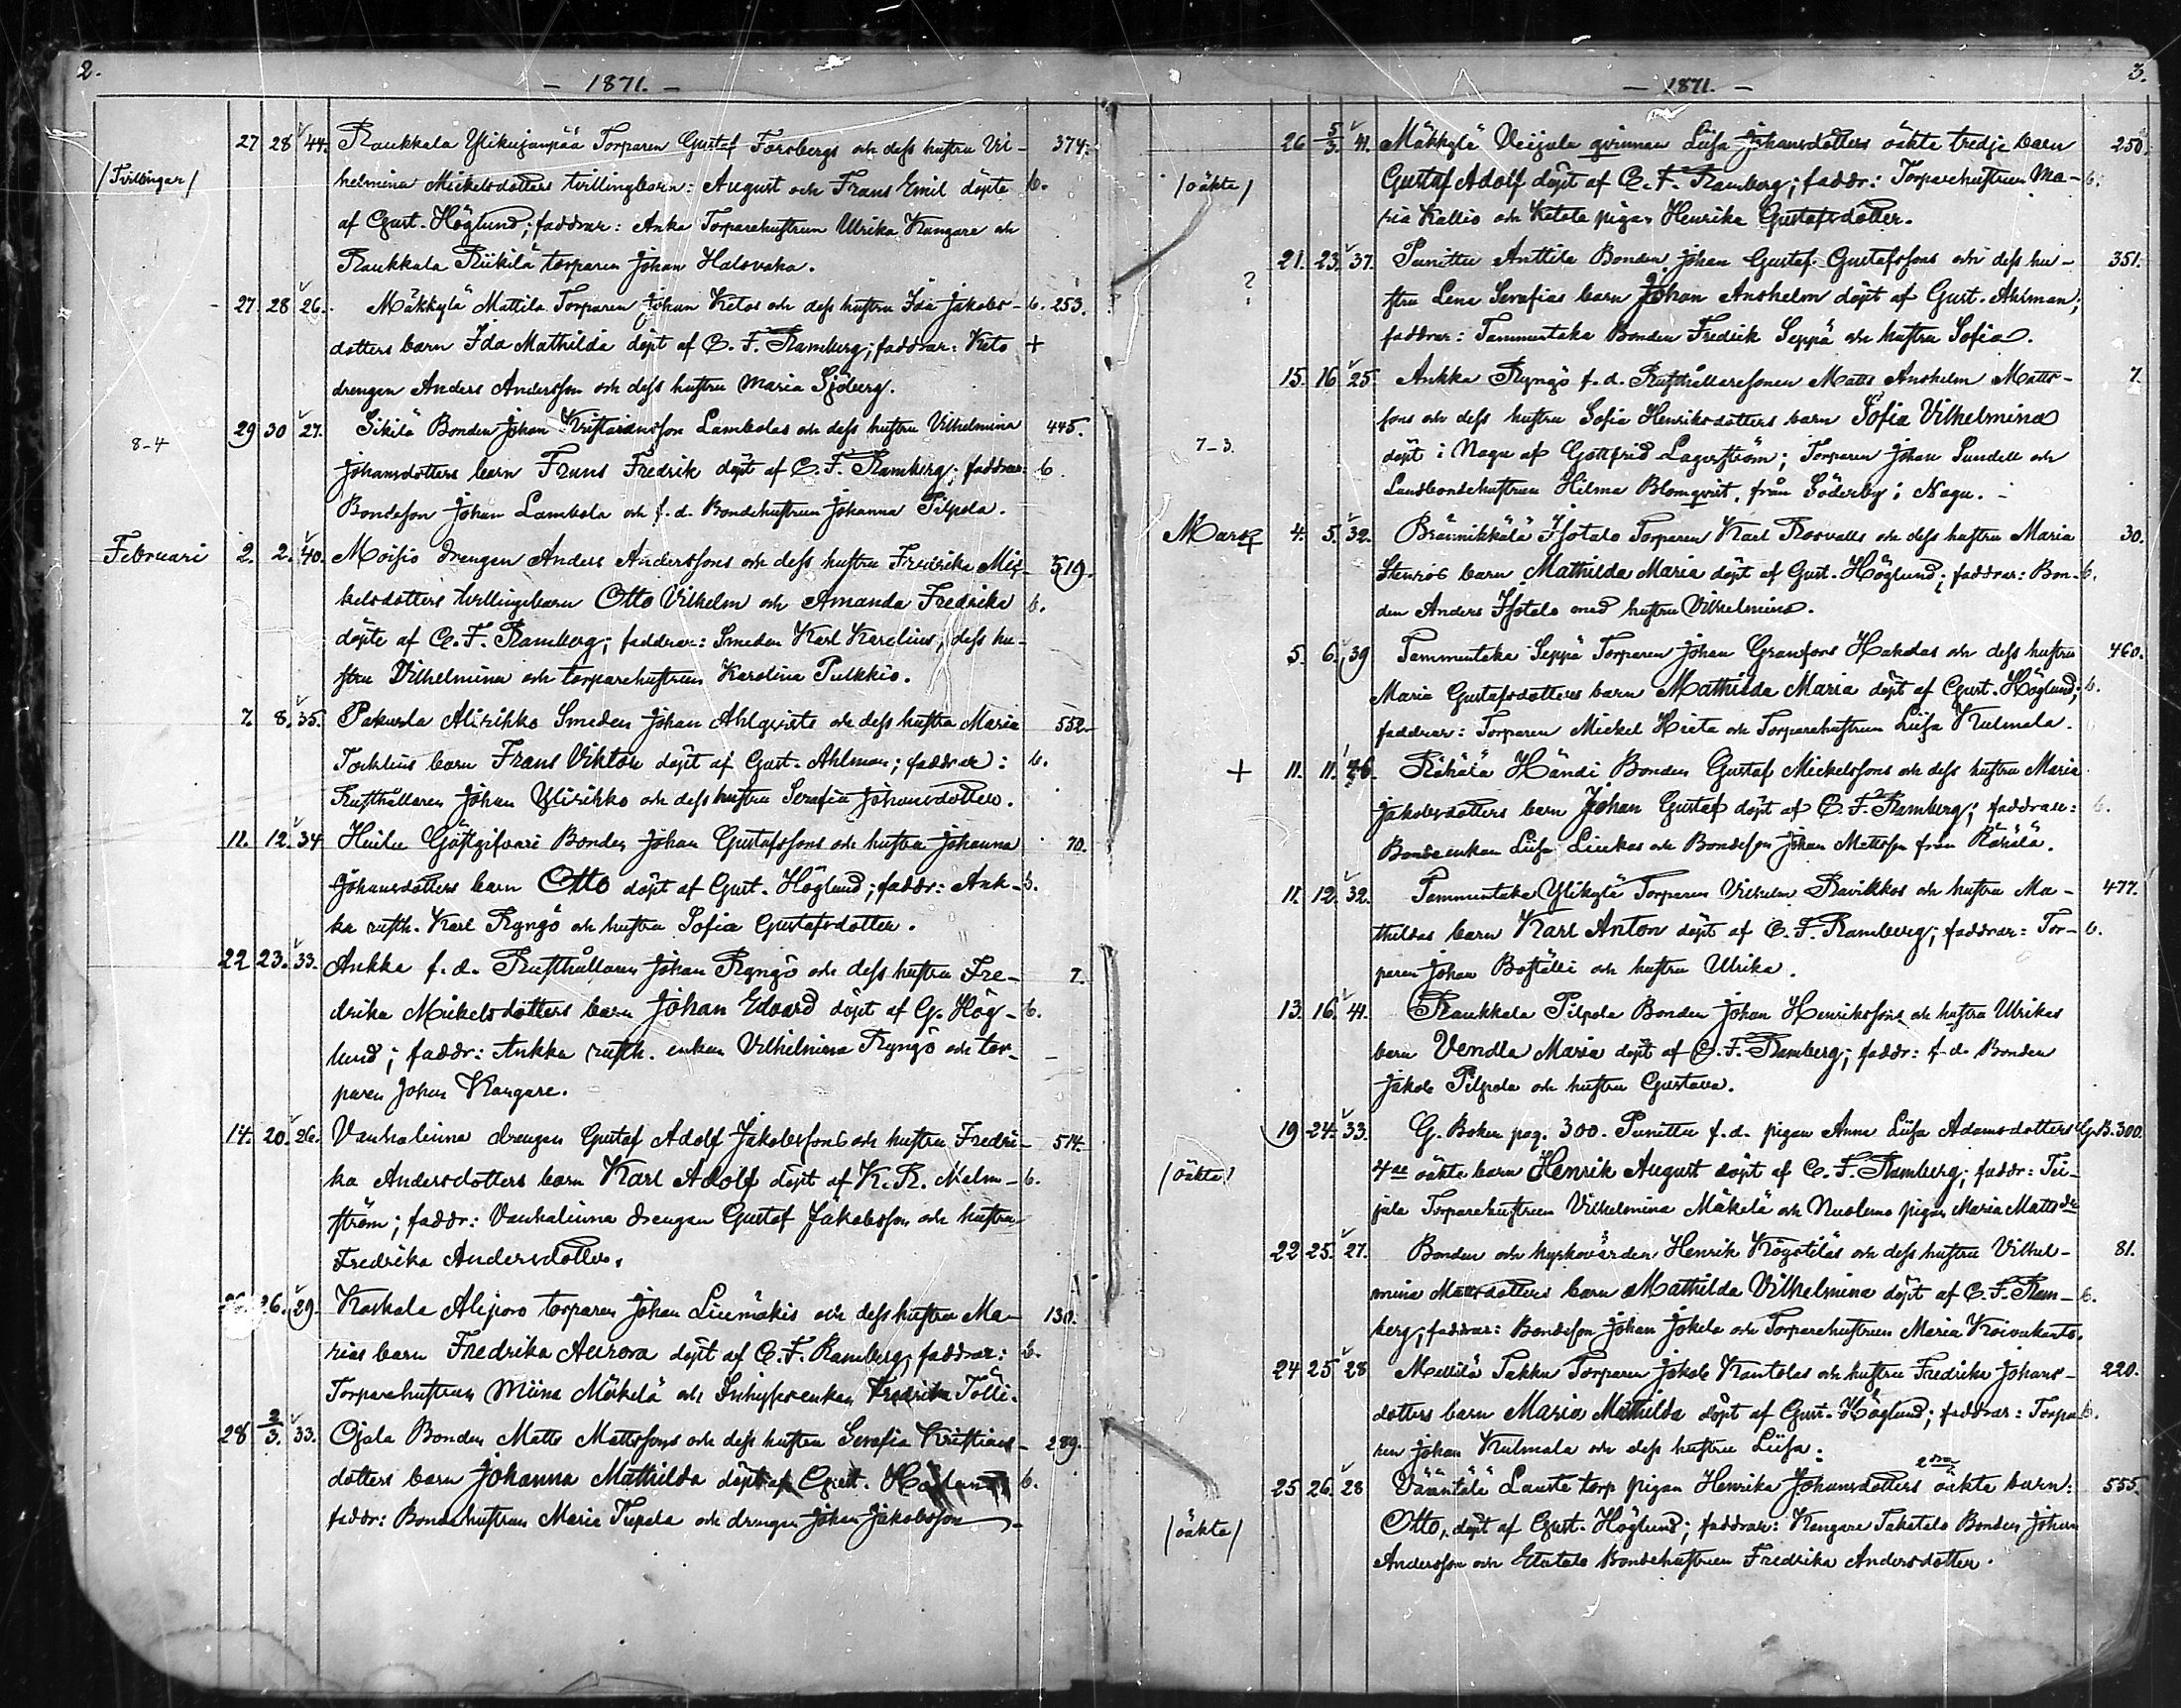 2.
- 1871. -
27 28 44. Raukkala Ylikujanpää Torparen Gustaf Forsbergs och dess hustru Vil- 374.
/Tvillingar/ helmina Mickelsdotters tvillingbarn: August och Frans Emil döpte b.
af Gust. Höglund; faddrar: Anka Torparehustrun Ulrika Kangare och
Raukkala Riikilä torparen Johan Halsvaha.
27. 28 26. Mäkkylä Mattila Torparen Johan Ketos och dess hustru Ida Jakobs- b. 253.
dotters barn Ida Mathilda döpt af C. F. Ramberg; faddrar: Keto +
drengen Anders Andersson och dess hustru Maria Sjöberg.
8-4 29 30 27. Sikilä Bonden Johan Kristiansson Lambolas och dess hustru Vilhelmina 445.
Johansdotters barn Frans Fredrik döpt af C. F. Ramberg; faddrar: b
Bondeson Johan Lambola och f. d. Bondehustrun Johanna Pilpola.
Februari 2. 2. 40. Moisio drengen Anders Anderssons och dess hustru Fredrika Mic- 519.
kelsdotters tvillingebarn Otto Vilhelm och Amanda Fredrika b.
döpte af C. F. Ramberg; faddrar: Smeden Karl Karelius, dess hu-
stru Vilhelmina och torparehustrun Karolina Pulkkio.
7. 8. 35. Pakurla Alirihko Smeden Johan Ahlqvists och dess hustru Maria 552.
barn Frans Viktor döpt af Gust. Ahlman; faddrar: b.
Rusthållaren Johan Ylirihko och dess hustru Serafia Johansdotter.
11. 12. 34 Huilu Gästgifvari Bonden Johan Gustafssons och hustru Johanna 70.
Johansdotters barn Otto döpt af Gust. Höglund; faddr: Ank- b.
ka rusth. Karl Ryngö och hustru Sofia Gustafsdotter.
22 23. 33. Ankka f. d. Rusthållaren Johan Ryngö och dess hustru Fre- 7.
drika Mickelsdotters barn Johan Edvard döpt af G. Hög- b.
lund; faddr: Ankka rusth. enkan Vilhelmina Ryngö och tor-
paren Johan Kangare.
14. 20. 26. Vanhalinna drengen Gustaf Adolf Jakobssons och hustru Fredri- 514.
ka Andersdotters barn Karl Adolf döpt af K. R. Malm- b.
ström; faddr: Vanhalinna drengen Gustaf Jakobsson och hustru
Fredrika Andersdotter.
26. 29. Koskala Alijoro torparen Johan Liimäkis och dess hustru Ma- 130.
rias barn Fredrika Aurora döpt af C. F. Ramberg; faddrar: b.
Torparehustrun Miina Mäkelä och Inhyseenkan Fredrika Tölli.
28 2/3. 33. Ojala Bonden Matts Mattssons och dess hustru Serafia Kristians- 289.
dotters barn Johanna Mathilda döpt af Gust. Höglund b.
faddr: Bondehustrun Maria Tupala och drengen Johan Jakobsson
3.
- 1871. -
26 5/3. 41. Mäkkylä Veijola qvinnan Liisa Johansdotters oäkta tredje barn 250.
/oäkta/ Gustaf Adolf döpt af C. F. Ramberg; faddr: Torparehustrun Ma- b.
ria Kallio och Ketola pigan Henrika Gustafsdotter.
21. 23. 37. Punittu Anttila Bonden Johan Gustaf Gustafssons och dess hu- 351.
? stru Lena Serafias barn Johan Anshelm döpt af Gust. Ahlman;
faddrar: Tammentaka Bonden Fredrik Seppä och hustru Sofia.
15. 16 25 Ankka Ryngö f. d. Rusthållaresonen Matts Anshelm Matts- 7.
sons och dess hustru Sofia Henriksdotters barn Sofia Vilhelmina
7-3. döpt i Nagu af Gottfrid Lagerström; Torparen Johan Sundell och
Landbondehustrun Hilma Blomqvist, från Söderby i Nagu.
Mars 4. 5. 32. Brännikkälä Isotalo Torparen Karl Rosvalls och dess hustru Maria 30.
Stenros barn Mathilda Maria döpt af Gust. Höglund; faddrar: Bon- b.
den Anders Isotalo med hustru Vilhelmina.
5. 6. 39 Tammentaka Seppä Torparen Johan Granfors Hakolas och dess hustru 460.
Maria Gustafsdotters barn Mathilda Maria döpt af Gust. Höglund; b.
faddrar: Torparen Mickel Hieta och Torparehustrun Liisa Kulmala.
+ 11. 11. 26. Rähälä Händi Bonden Gustaf Mickelssons och dess hustru Maria
Jakobsdotters barn Johan Gustaf döpt af C. F. Ramberg; faddrar: b.
Bondeenkan Liisa Liukas och Bondeson Johan Mattsson från Rähälä.
11. 12. 32. Tammentaka Ylikylä Torparen Vilhelm Ravikkos och hustru Ma- 477.
thildas barn Karl Anton döpt af C. F. Ramberg; faddrar: Tor- b.
paren Johan Boställi och hustru Ulrika.
13. 16. 41. Raukkala Pilpola Bonden Johan Henrikssons och hustru Ulrikas
barn Vendla Maria döpt af C. F. Ramberg; faddr: f. d. Bonden
Jakob Pilpola och hustru Gustava.
19 24. 33. G. Boken pag. 300. Punittu f. d. pigan Anna Liisa Adamsdotters G. B. 300.
/oäkta/ 4de oäkta barn Henrik August döpt af C. F. Ramberg; faddr: Tei-
jula Torparehustrun Vilhelmina Mäkelä och pigan Maria Mattsdr
22 25. 27. Bonden och kyrkovärden Henrik Högstiläs och dess hustru Vilhel- 81.
mina Mattsdotters barn Mathilda Vilhelmina döpt af C. F. Ram- b.
berg; faddrar: Bondeson Johan Jokela och Torparehustrun Maria Koivukanto.
24 25 28 Mellilä Takku Torparen Jakob Kantolas och hustru Fredrika Johans- 220.
dotters barn Maria Mathilda döpt af Gust. Höglund; faddrar: Torpa- b.
ren Johan Kulmala och dess hustru Liisa.
25 26. 28 Vääntälä Lauste torp pigan Henrika Johansdotters 2dra oäkta barn: 555.
/oäkta/ Otto, döpt af Gust. Höglund; faddrar: Kangare Takatalo Bonden Johan
Andersson och Etutalo Bondehustrun Fredrika Andersdotter.